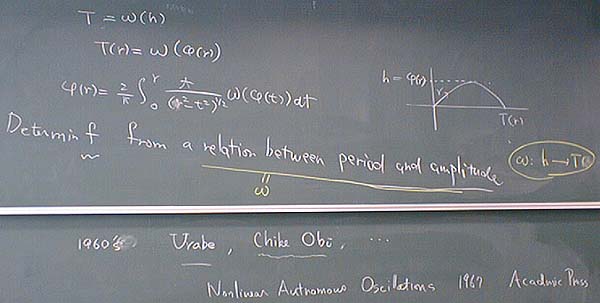 T = ω(h)
T(r) = ω(φ(r))
φ(r) = 2/π ∫₀ʳ t/(r²-t²)^{1/2} ω(φ(t)) dt
h = φ(r)
r
T(r)
Determin f from a relation between period and amplitude
ω
ω: h → T
1960's Urabe, Chike Obi, ...
Nonlinear Autnomous Oscillations 1967 Academic Press